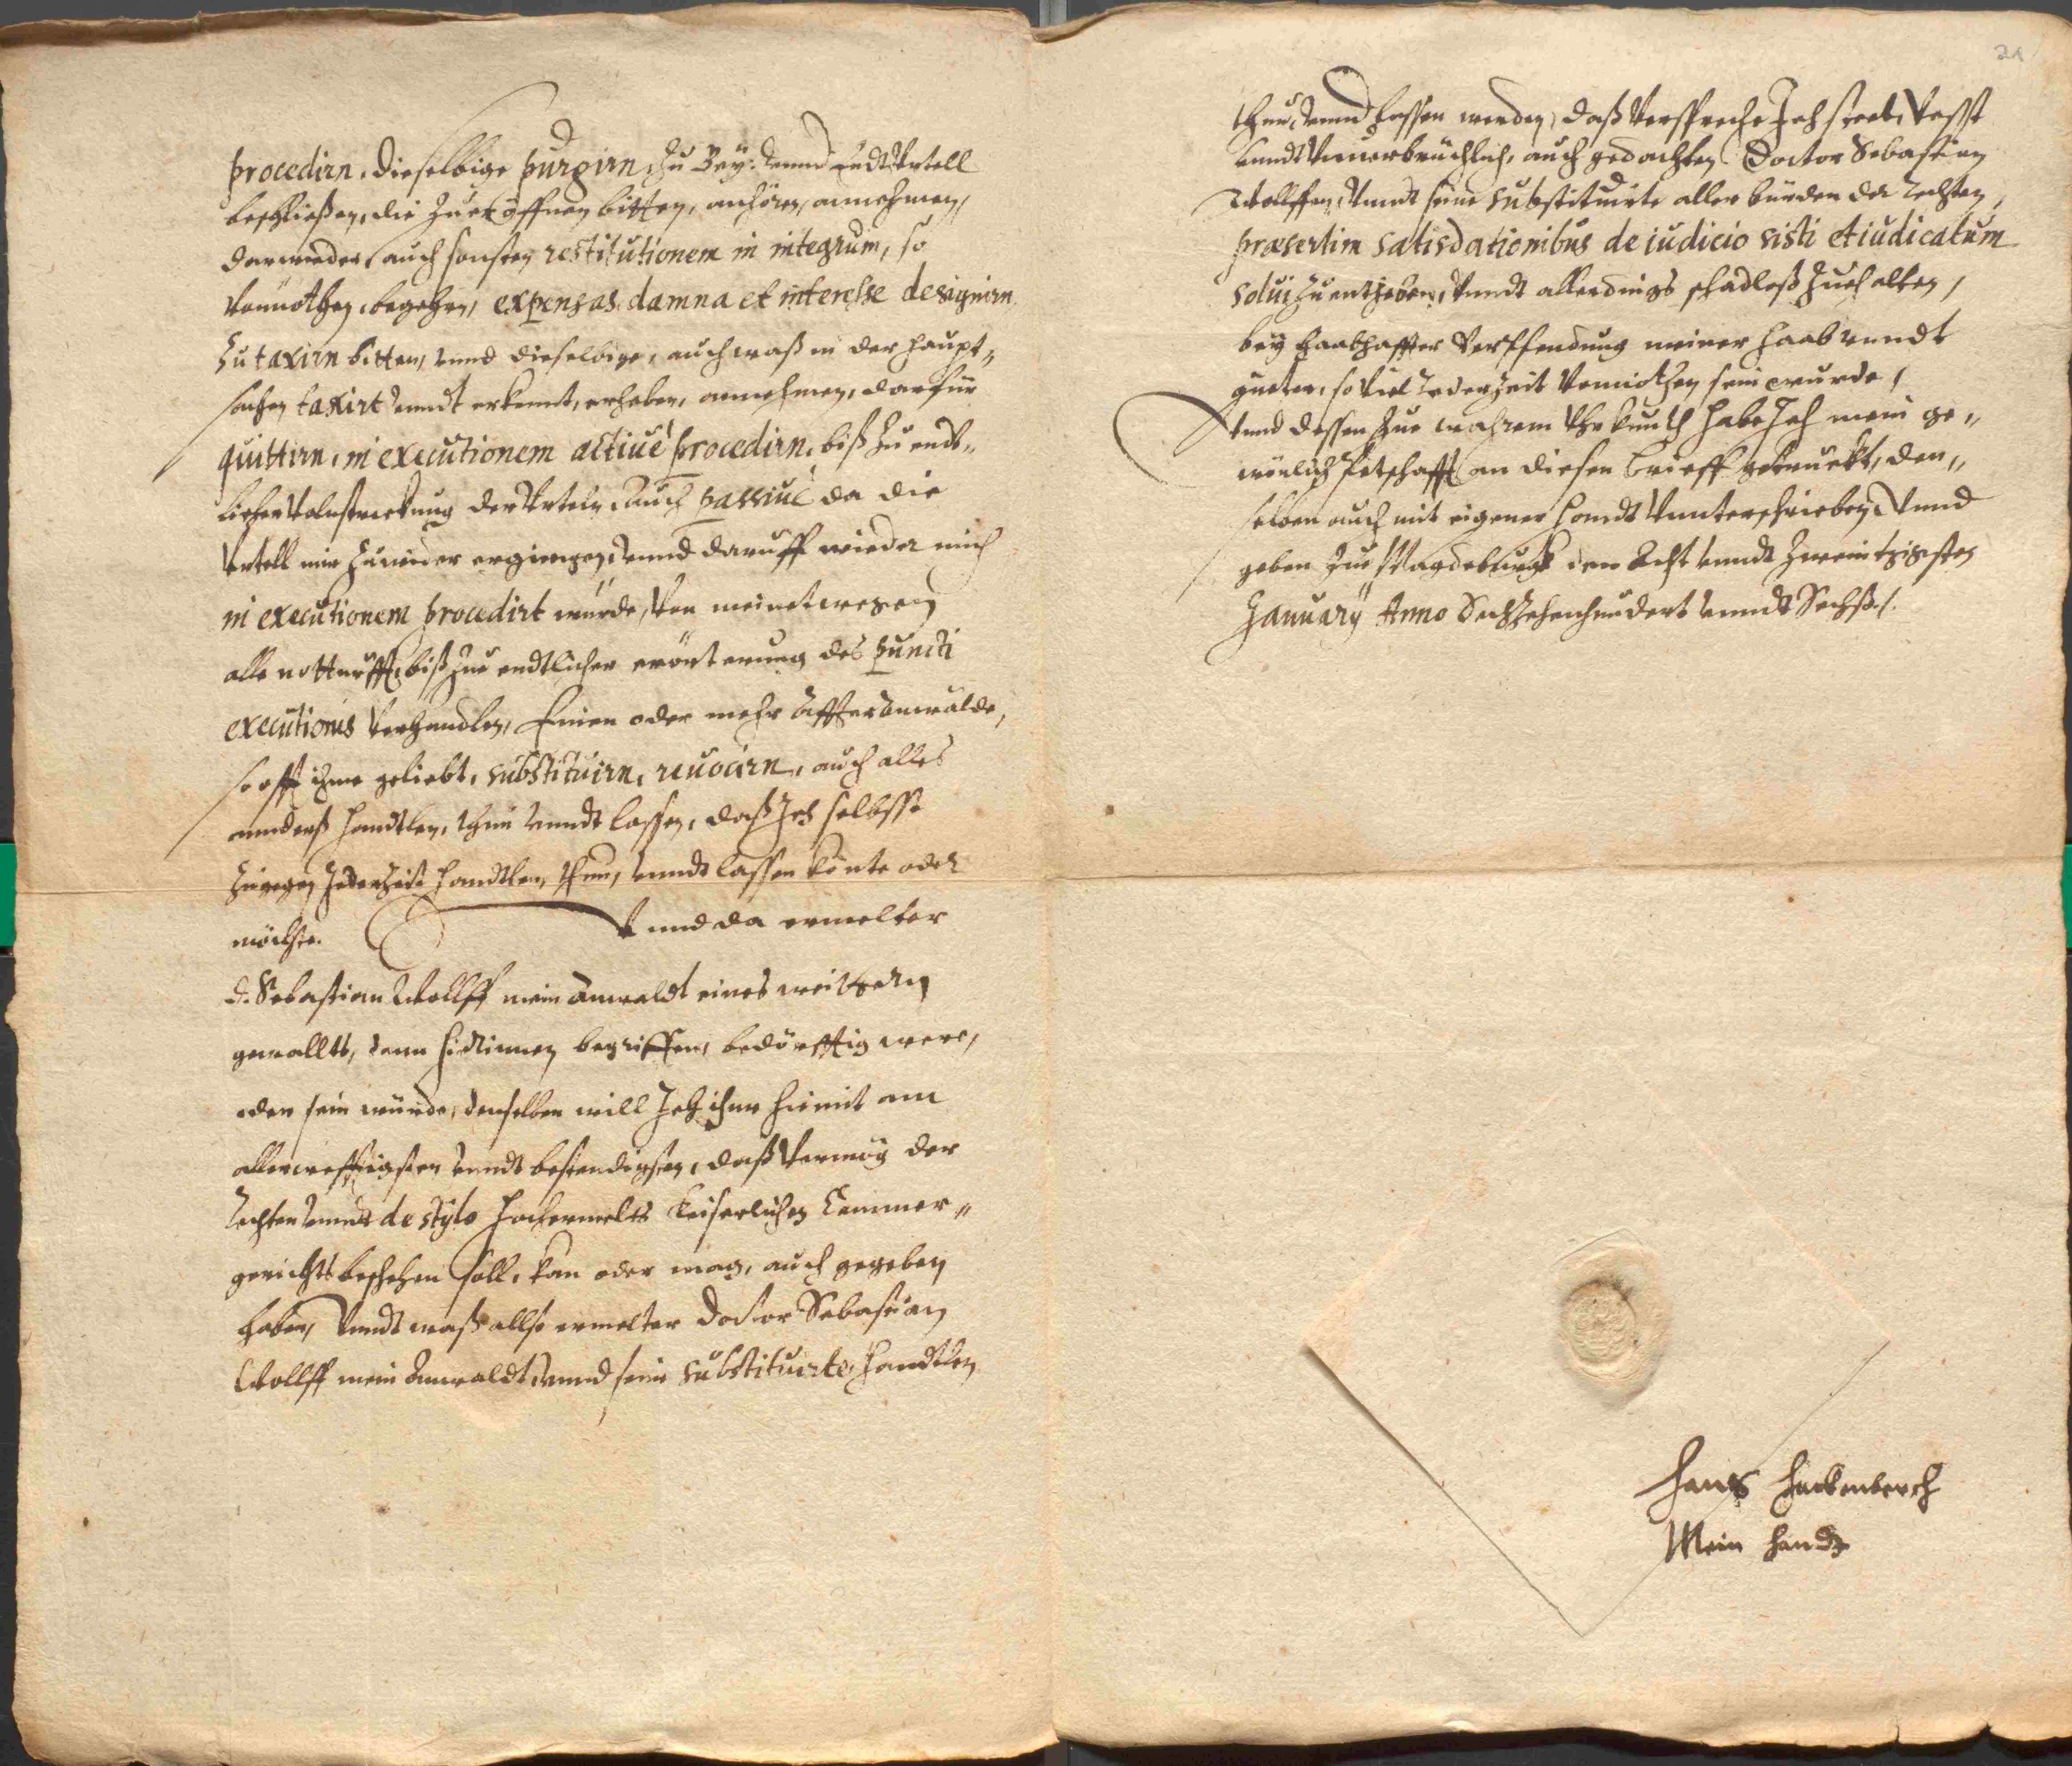 procedirn, dieselbige purgirn, zu Bey: vnnd Endt Vrtell
beschließen, die zu eröffnen bitten, anhören, annehmen,
darwieder, auch sonsten restitutionem in integrum, so
vonnöthen, begehrn, expensas, damna et interesse designirn
zu taxirn bitten, vnnd dieselbige, auch waß in der haupt„
sachen taxirt vnndt erkennt, erheben, annehmen, darfür
quittirn, in executionem actiuè procedirn, biß zu endt„
licher Volnstreckung der Vrteln, Auch passiuè da die
Vrtell mir zuwider ergiengen, vnnd daruff wieder mich
in executionem procedirt würde, von meinetwegen
alle notturfft, biß zue endtlicher erörterung des puncti
executionis verhandlen, Einen oder mehr Affter Anwälde,
so offt ihme geliebt, substituirn, reuocirn, auch alles
annderß handtlen, thun vnndt lassen, daß Ich selbsst
zugegen Jederzeit handtlen, thun, vnndt lassen könte oder
möchte. Vnnd da ermelter
D. Sebastian Wollff mein Anwaldt eines weittern
gewallts, denn hierinnen begriffen, bedörfftig were,
oder sein würde, denselben will Ich ihme hiemit am
allercrefftigsten vnndt bestendigsten, daß Vermög der
Rechten vnndt de stylo hochermelts Keiserlichen Cammer„
gerichts beschehen soll, kan oder mag, auch gegeben
haben, Vnndt waß allso ermelter Doctor Sebastian
Wollff mein Anwaldt, vnnd seine substituirte, handtlen
21
thun, vnnd lassen werden, daß Verspreche Ich steet, Vesst
vnndt Vnuerbrüchlich, auch gedachten Doctor Sebastian
Wollffen, Vnndt seine substituirte aller bürden der Rechten,
præsertim satisdationibus de iudicio sisti et iudicatum
solui zu entheben, Vnndt allerdings schadloß zu halten,
bey haabhaffter Verpfendung meiner Haab vnndt
güeter, so viel Jederzeit vonnöthen sein wurde,
Vnnd dessen zue wahrem Vhrkundt habe Ich mein ge„
wönlich Petschafft an diesen brieff getruckt, den„
selben auch mit eigener Handt Vnnterschrieben, Vnnd
geben zue Magdeburgk den Acht vnndt zweintzigsten
January Anno Sechzehenhundert vnndt Sechß.
Hans Hackenberch
Mein handt